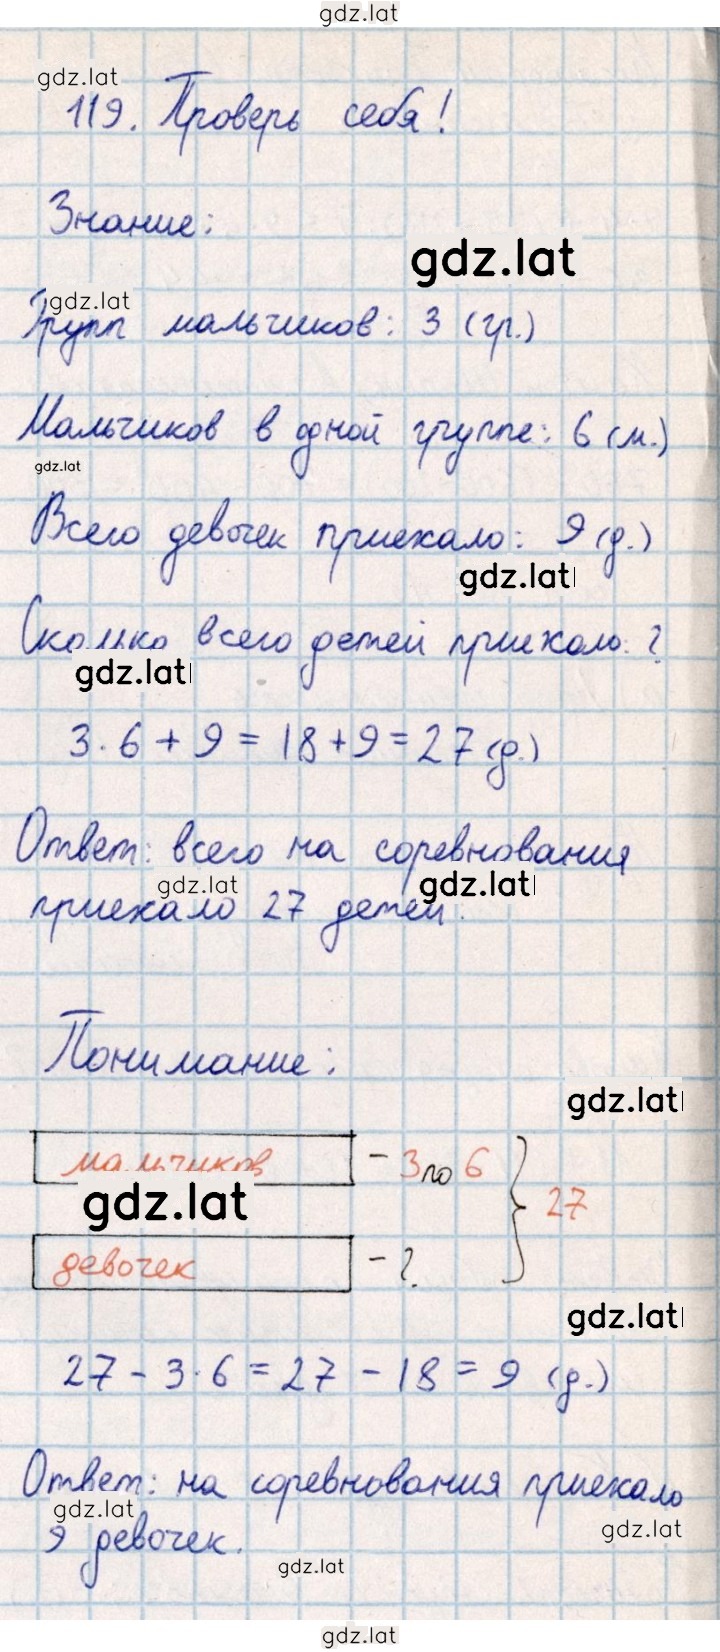 gdz.lat
gdz.lat
119. Проверь себя!
Знание:
gdz.lat
gdz.lat
Групп мальчиков: 3 (гр.)
Мальчиков в одной группе: 6 (м.)
gdz.lat
Всего девочек приехало: 9 (д.)
gdz.lat
Сколько всего детей приехало: ?
gdz.lat
3·6+9=18+9=27 (д.)
Ответ: всего на соревнования
gdz.lat gdz.lat
приехало 27 детей.
Понимание:
gdz.lat
мальчиков - 3 по 6
gdz.lat
27
девочек - ?
gdz.lat
27-3·6=27-18=9 (д.)
Ответ: на соревнования приехало
gdz.lat
gdz.lat
9 девочек.
gdz.lat
gdz.lat